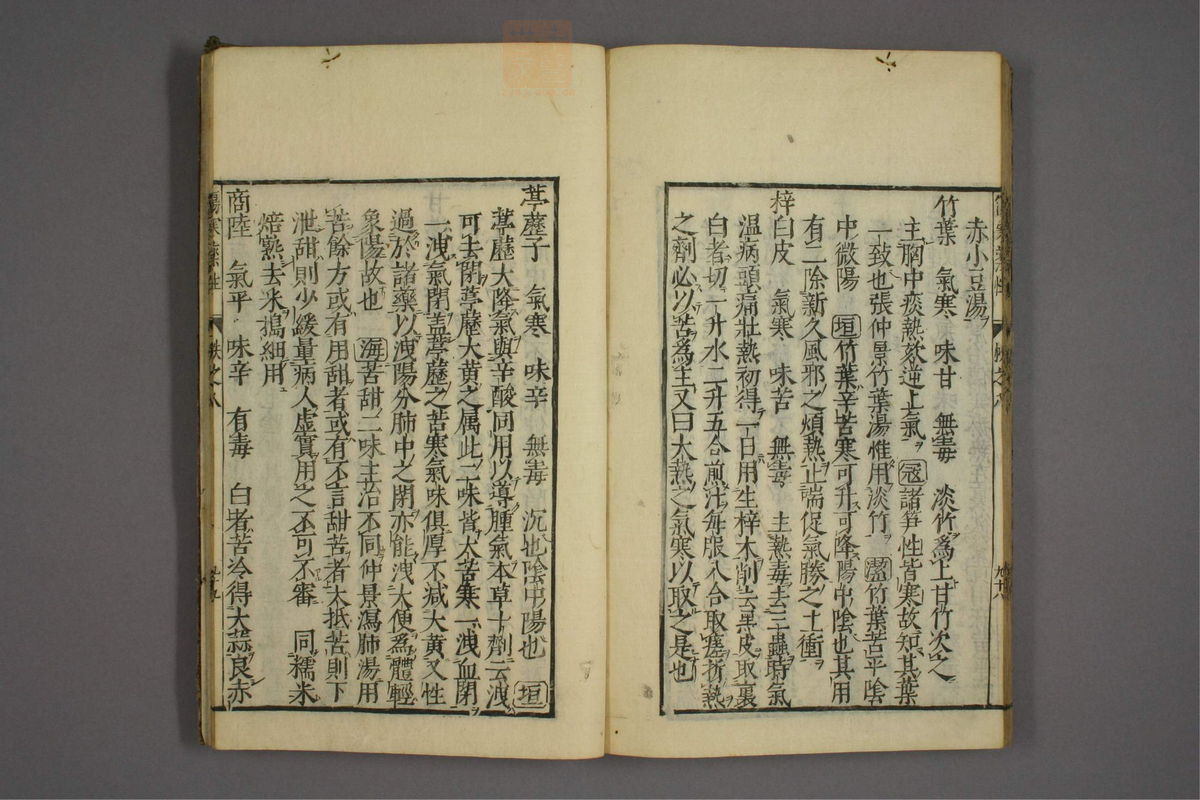 赤小豆湯
竹葉　氣寒　味甘　無毒　淡竹爲上甘竹次之
主胸中痰熱欬逆上氣　寇諸笋性皆寒故知其葉
一致也張仲景竹葉湯惟用淡竹　潔竹葉苦平陰
中微陽　垣竹葉辛苦寒可升可降陽中陰也其用
有二除新久風邪之煩熱止喘促氣勝之上衝
梓白皮　氣寒　味苦　無毒　主熱毒去三蟲時氣
溫病頭痛壯熱初得一日用生梓木削去黑皮取裏
白者切一升水二升五合煎汁每服八合取瘥折熱
之劑必以苦爲主又曰大熱之氣寒以取之是也
葶藶子　氣寒　味辛　無毒　沉也陰中陽也　垣
葶藶大降氣與辛酸同用以導腫氣本草十劑云洩
可去閉葶藶大黃之属此二味皆大苦寒一洩血閉
一洩氣閉盖葶藶之苦寒氣味俱厚不減大黃又性
過於諸藥以洩陽分肺中之閉亦能洩大便爲體輕
象陽故也　海苦甜二味主治不同仲景瀉肺湯用
苦餘方或有用甜者或有不言甜苦者大抵苦則下
泄甜則少緩量病人虛實用之不可不審　同糯米
焙熟去米搗細用
商陸　氣平　味辛　有毒　白者苦冷得大蒜良赤